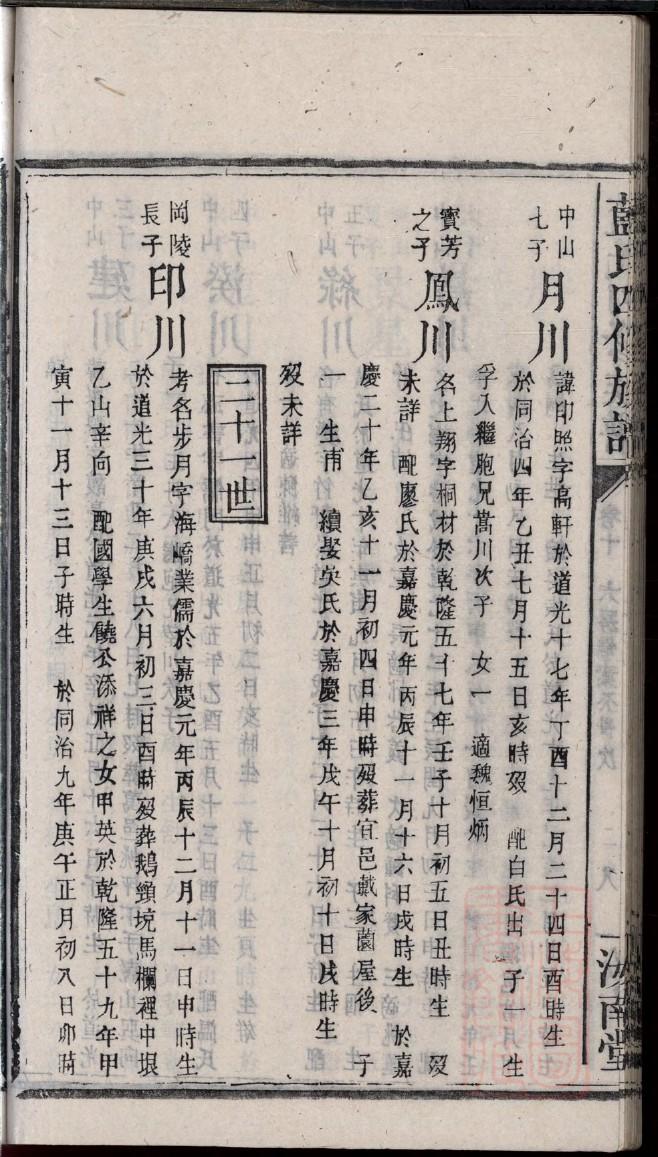 藍氏四修族譜
汝南堂
中山
七子
月川
諱印照字高軒於道光十七年丁酉十二月二十四日酉時生
於同治四年乙丑七月十五日亥時歿　配白氏出　子一　生
孚入繼胞兄嵩川次子　女一　適魏恒炳
寳芳
之子
鳳川
名上翔字桐材於乾隆五十七年壬子十月初五日丑時生　歿
未詳　配廖氏於嘉慶元年丙辰十一月十六日戌時生　於嘉
慶二十年乙亥十一月初四日申時歿葬宜邑戴家薗屋後　子
一　生甫　續娶吳氏於嘉慶三年戊午十月初十日戌時生
歿未詳
二十一世
岡陵
長子
印川
考名步月字海嶠業儒於嘉慶元年丙辰十二月十一日申時生
於道光三十年庚戌六月初三日酉時歿葬鵝頸坑馬欄裡中垠
乙山辛向　配國學生饒公添祥之女甲英於乾隆五十九年甲
寅十一月十三日子時生　於同治九年庚午正月初八日卯時